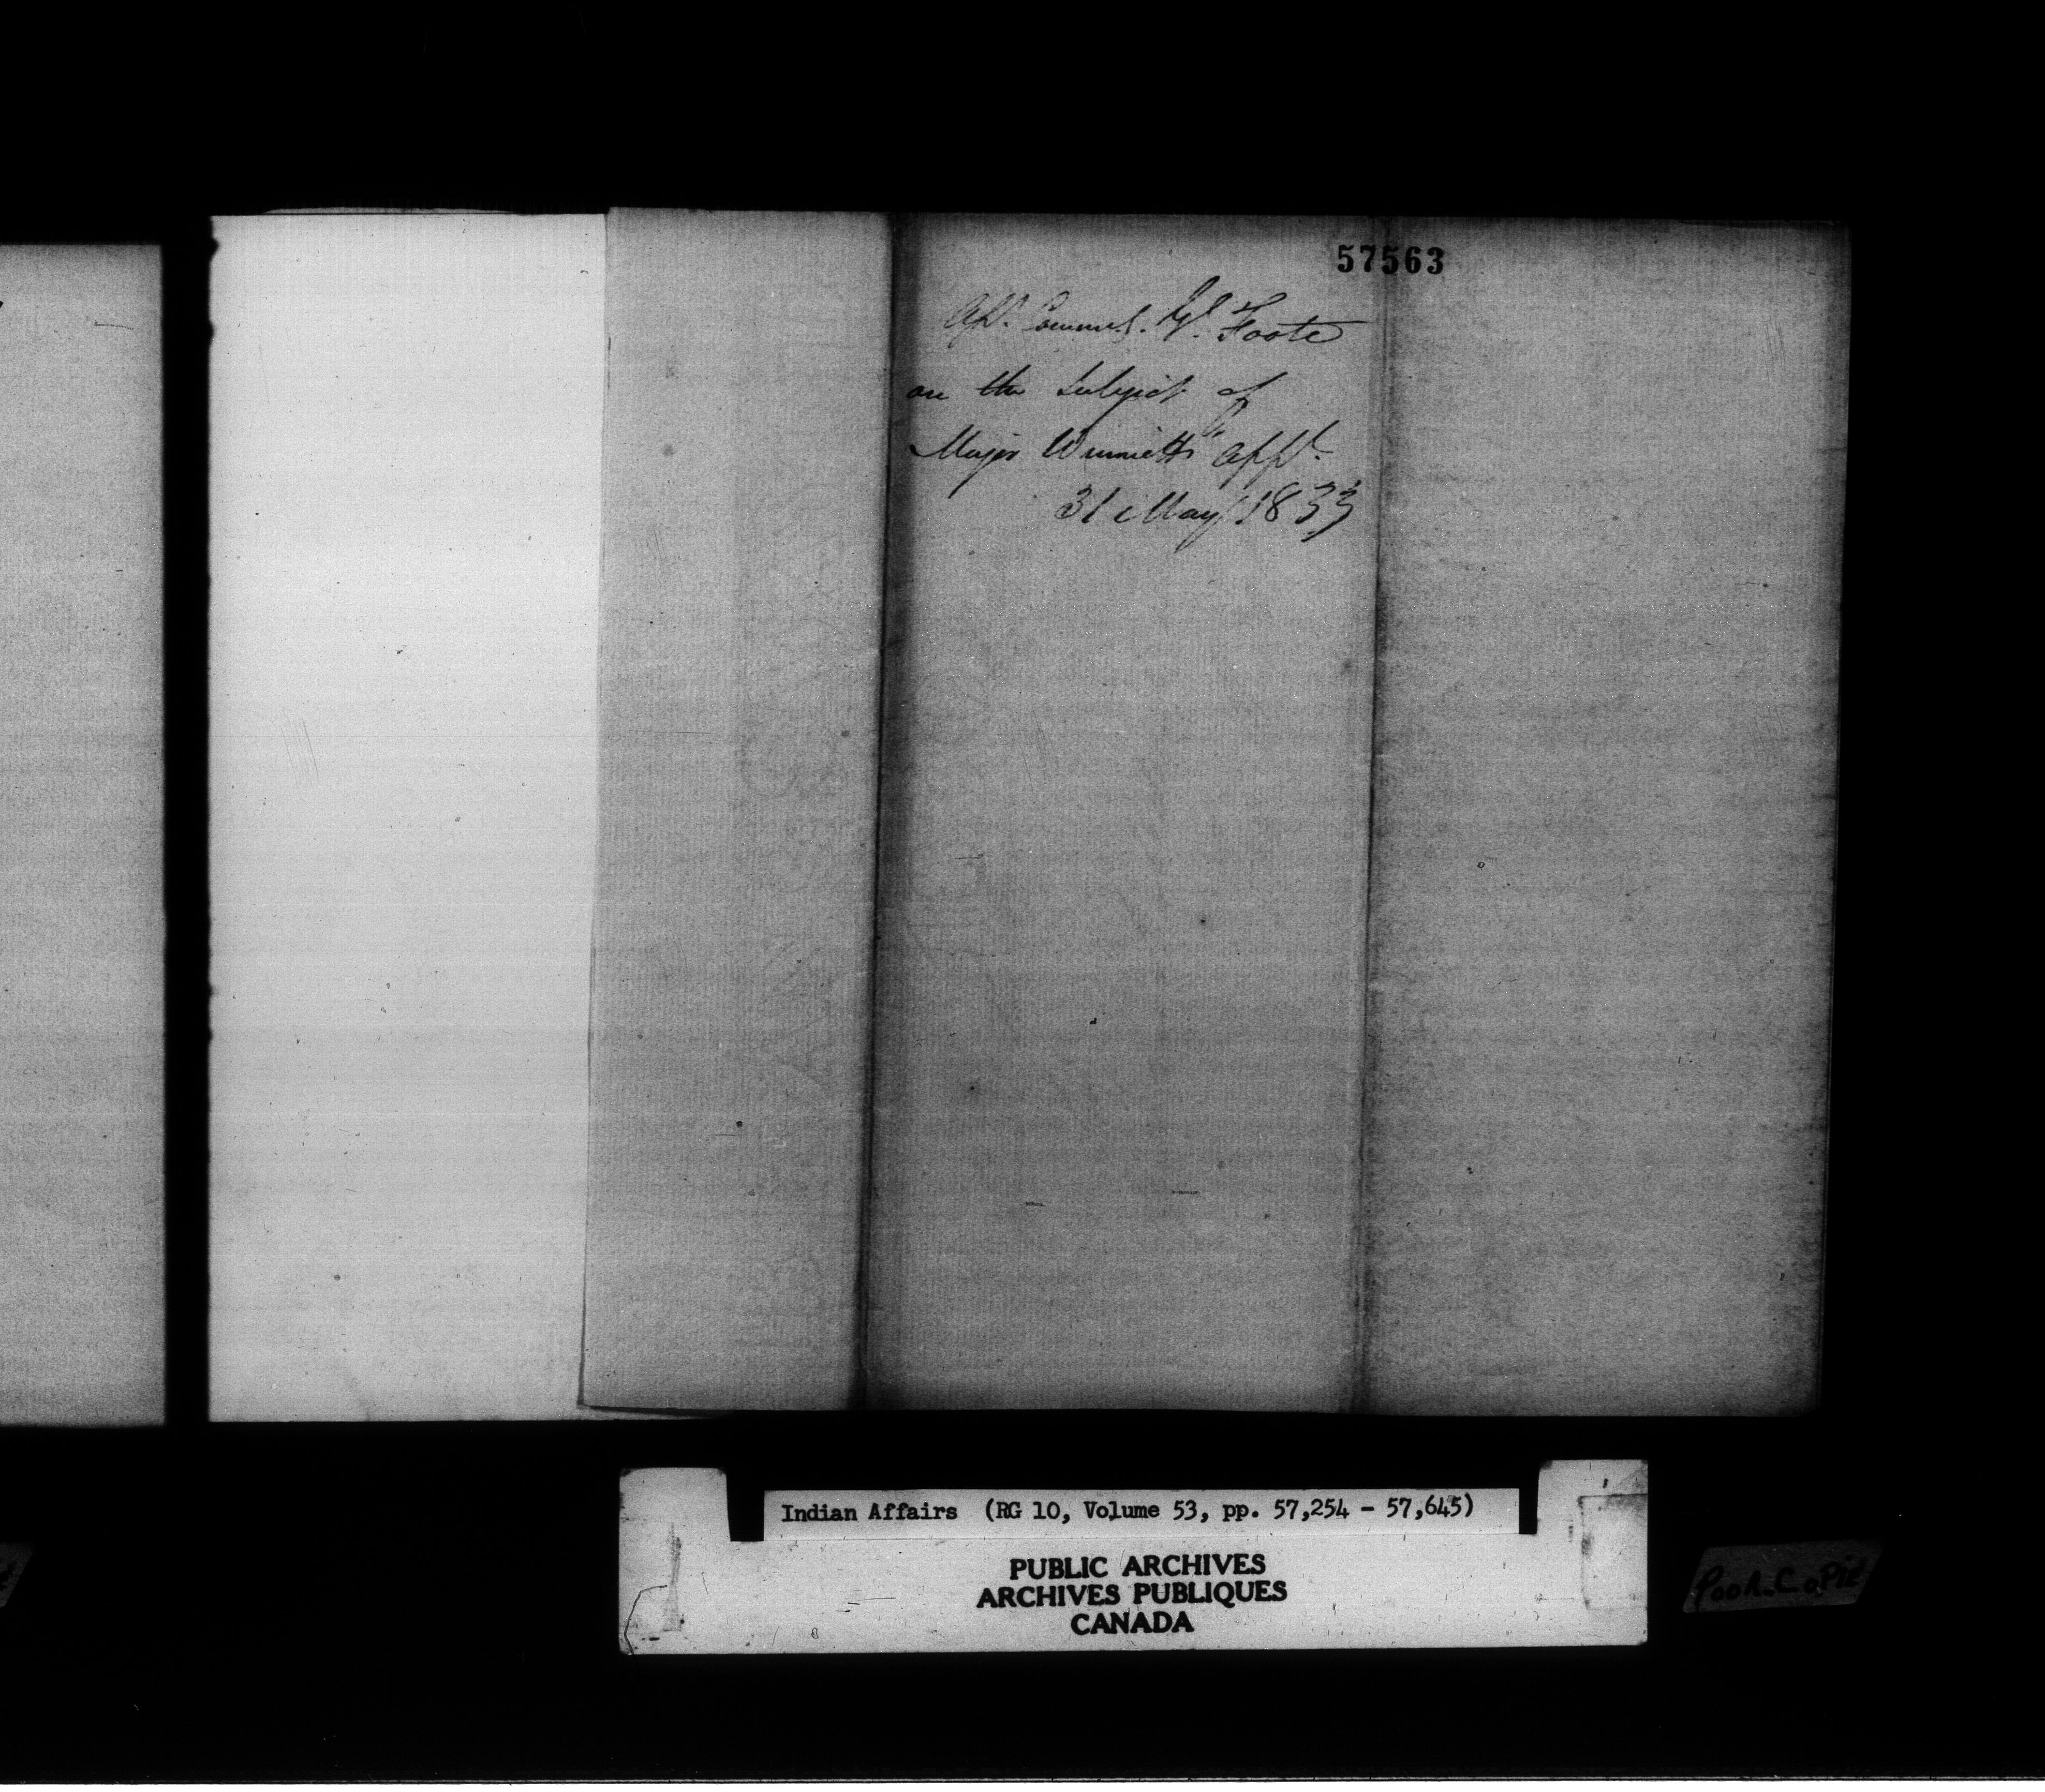 57563
Asst. Commis. Gl. Foote
on the Subject of
Major Winnietts appt.
31 May 1833
Indian Affairs (RG 10, Volume 53, pp. 57,254 - 57,645)
PUBLIC ARCHIVES
ARCHIVES PUBLIQUES
CANADA
PooR_CoPie